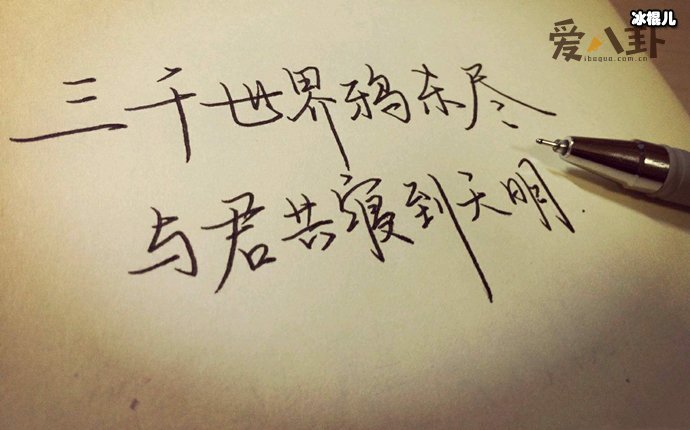 冰棍儿
爱八卦
ibagua.com.cn
三千世界鸦杀尽
与君共寝到天明